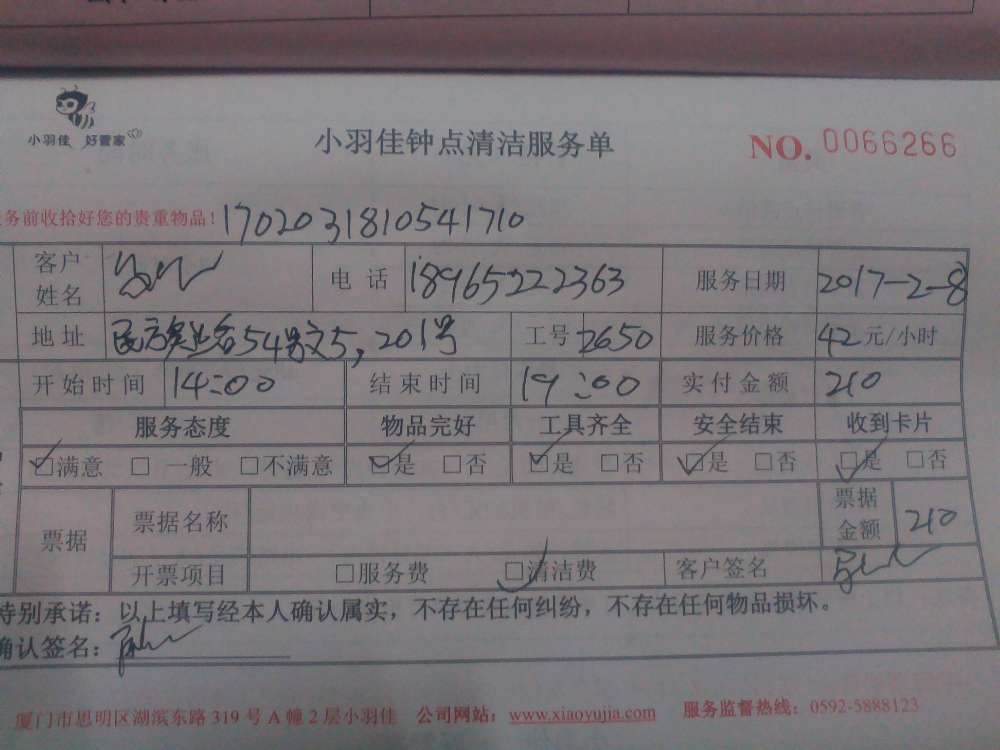 小羽佳 好管家
小羽佳钟点清洁服务单
NO. 0066266
务前收拾好您的贵重物品！1702031810541710
客户姓名 电话 18965222363 服务日期 2017-2-8
地址 54号之5，201号 工号 2650 服务价格 42元/小时
开始时间 14:00 结束时间 19:00 实付金额 210
服务态度 物品完好 工具齐全 安全结束 收到卡片
☑满意 □一般 □不满意 ☑是 □否 ☑是 □否 ☑是 □否 ☑是 □否
票据 票据名称 票据金额 210
开票项目 □服务费 ☑清洁费 客户签名
特别承诺：以上填写经本人确认属实，不存在任何纠纷，不存在任何物品损坏。
确认签名：
厦门市思明区湖滨东路319号A幢2层小羽佳 公司网站：www.xiaoyujia.com 服务监督热线：0592-5888123